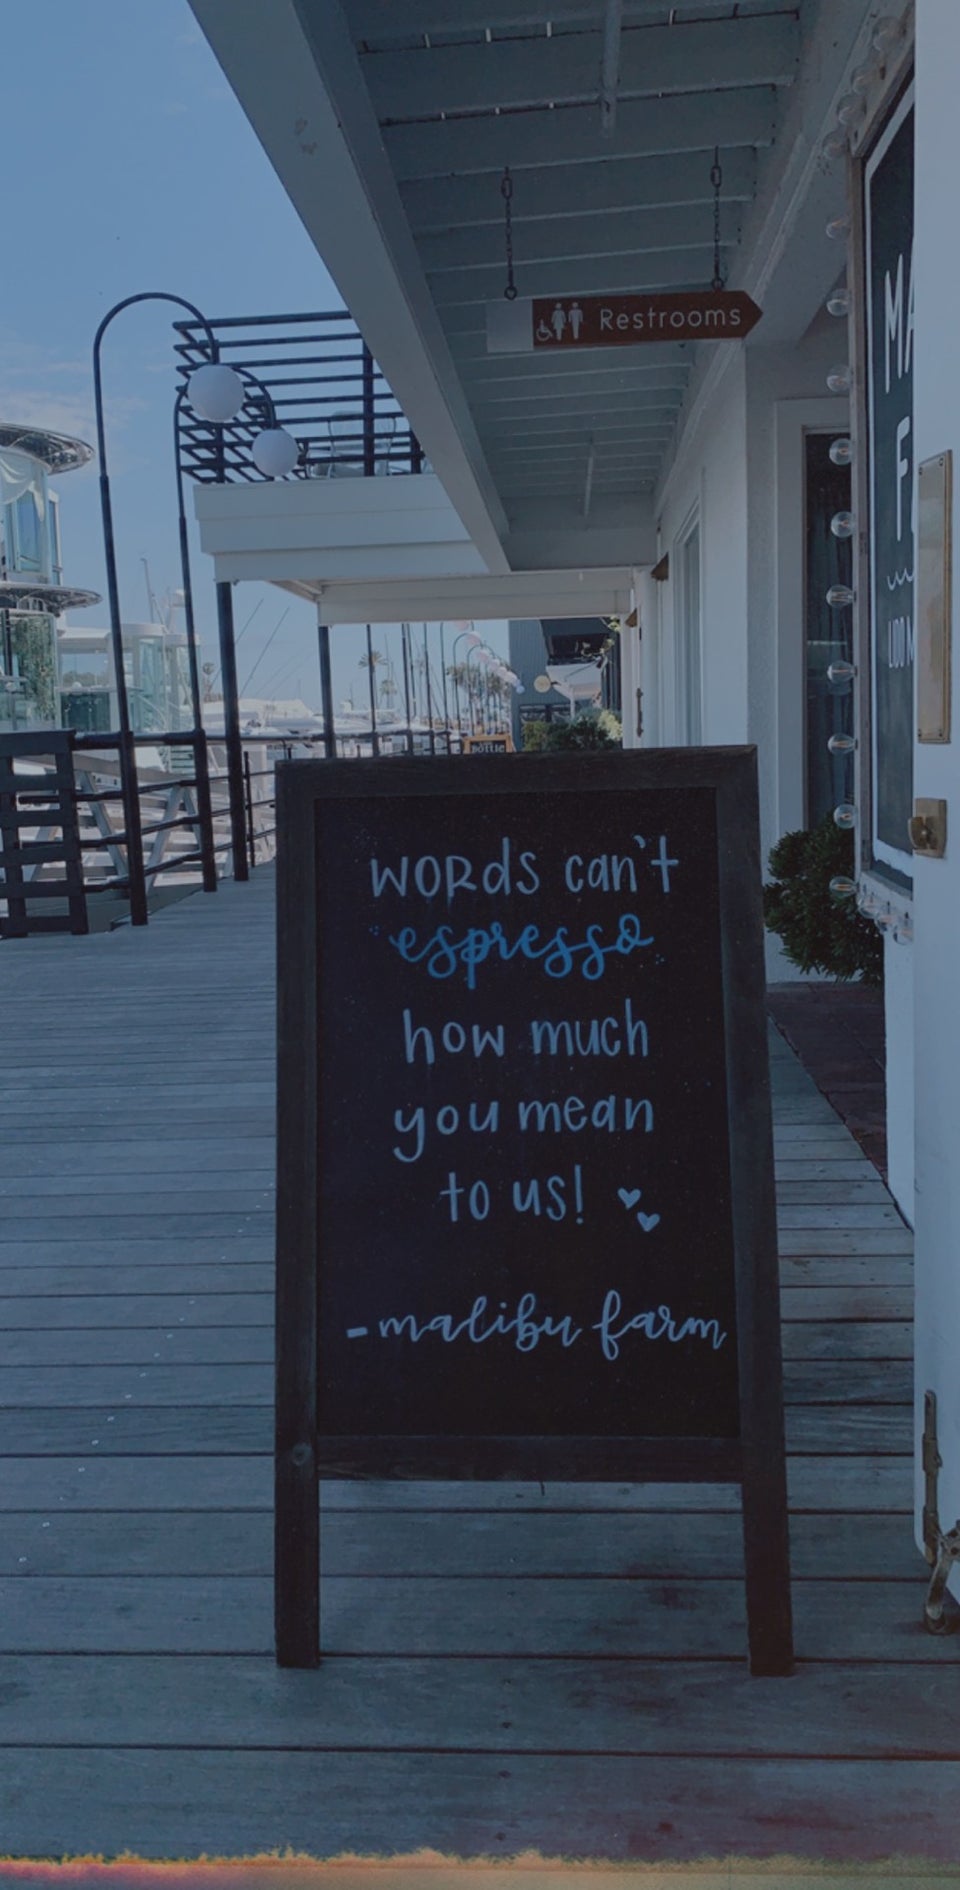 Restrooms
words can't
espresso
how much
you mean
to us!
-malibu farm